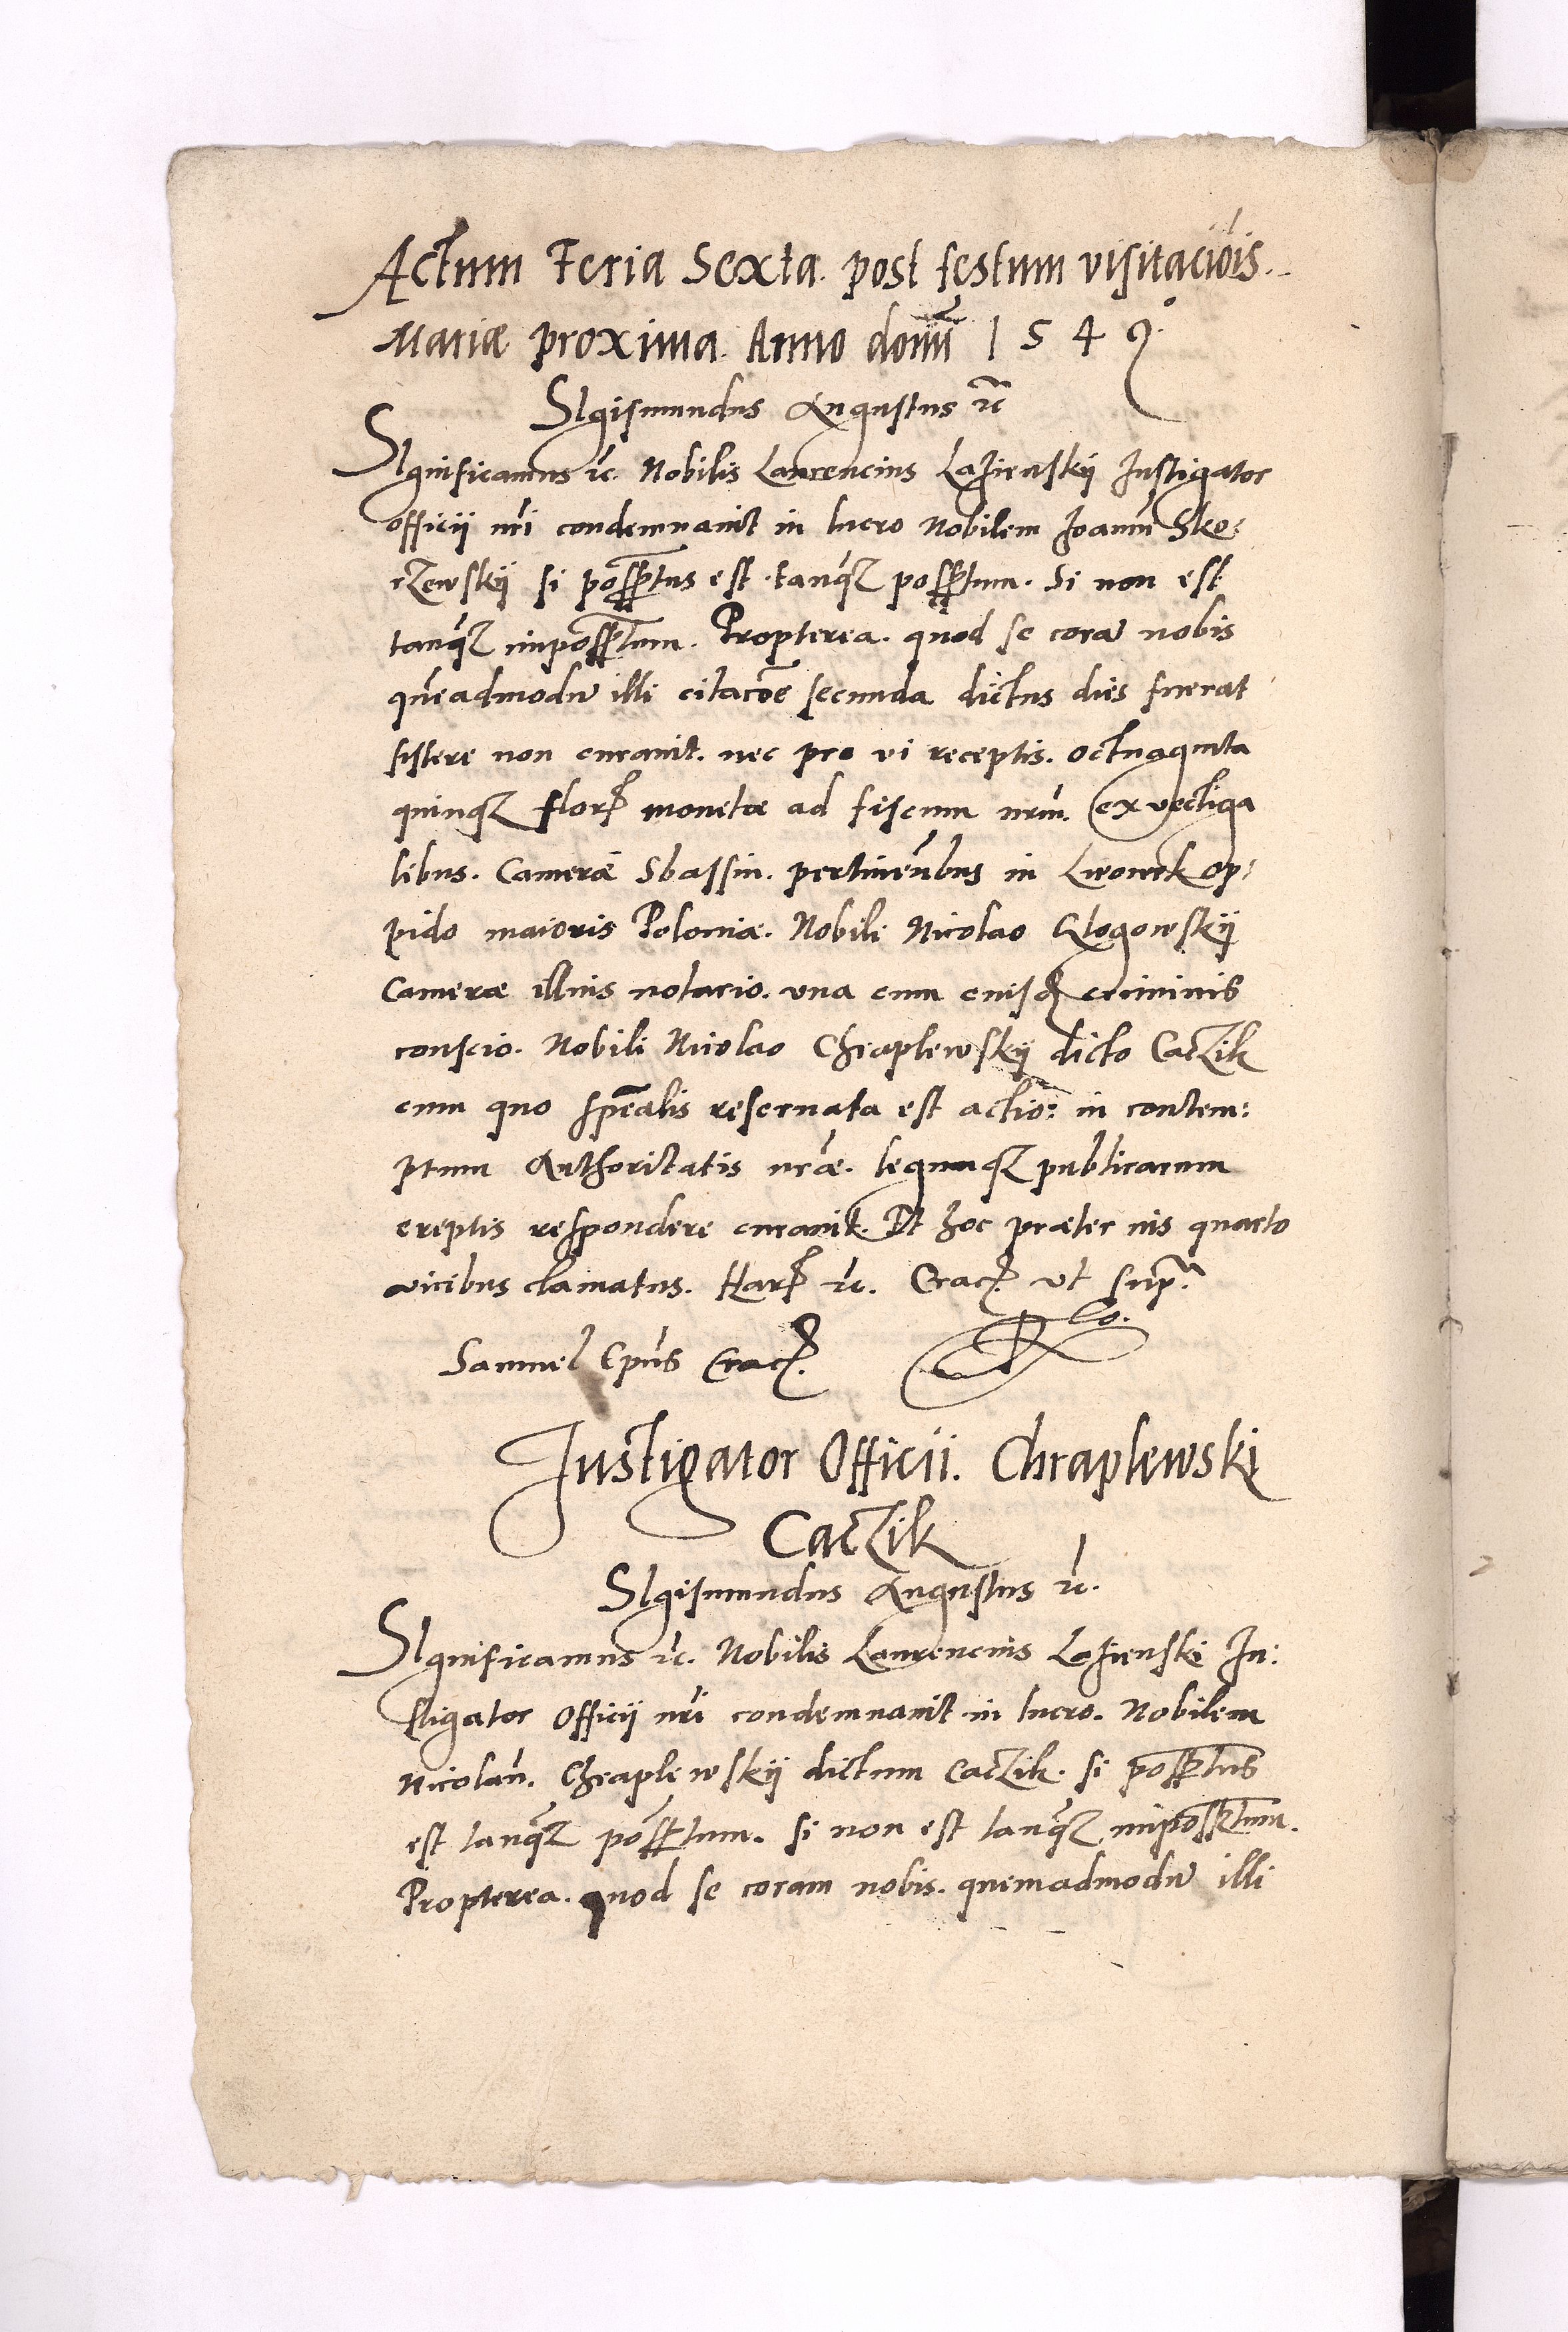 Actum Feria Sexta post festum visitaciois
Mariæ proxima. Anno domi 1549°
SIgismundus Augustus rc
SIgnificamus rc. Nobilis Laurencius Lazienskij Instigator
officii nri condemnauit in lucro Nobilem Joannu Sko:
rzewskij si possstus est tanqz possstum. Si non est
tanqz impossstum. Propterea. quod se cora nobis
queadmodu illi citacoe secunda dictus dies fuerat
sistere non curauit. nec pro vi receptis. octuaginta
quinqz flor monetæ ad fiscum nrm. ex vectiga
libus. Cameræ Sbassin. pertinentibus in Lwowek op:
pido maioris Poloniæ. Nobili Nicolao Glogowskij
Cameræ illius notario. vna cum eiusd criminis
conscio. Nobili Nicolao Chraplewskij dicto Caczik
cum quo specalis reseruata est actio: in contem:
ptum Authoritatis nræ. legumqz publicarum
ereptis respondere curauit. Et hoc præter ius quarto
vicibus clamatus. Har rc. Crac. vt sup.
Samuel Epus Crac.
Instigator Officii. Chraplewski
Caczik
SIgismundus Augustus rc.
SIgnificamus rc. Nobilis Laurencius Lazienski In:
stigator Officij nri condemnauit in lucro. Nobilem
Nicolau. Chraplewskij dictum Caczik. si possstus
est tanqz possstum. si non est tanqz impossstum.
Propterea. quod se coram nobis. quemadmodu illi